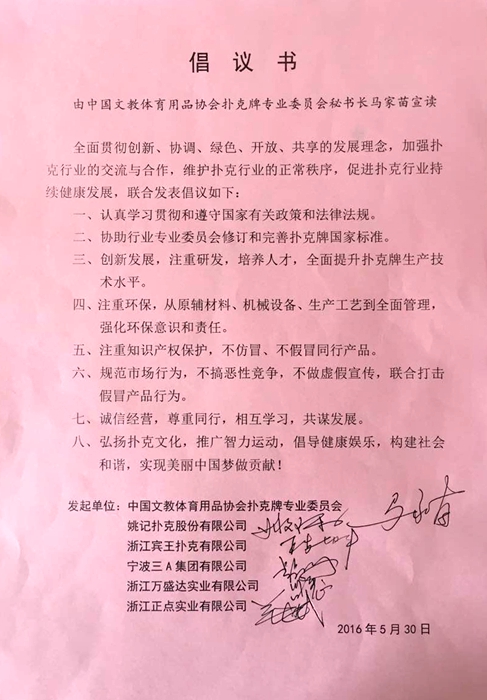 倡议书
由中国文教体育用品协会扑克牌专业委员会秘书长马家苗宣读
全面贯彻创新、协调、绿色、开放、共享的发展理念，加强扑
克行业的交流与合作，维护扑克行业的正常秩序，促进扑克行业持
续健康发展，联合发表倡议如下：
一、认真学习贯彻和遵守国家有关政策和法律法规。
二、协助行业专业委员会修订和完善扑克牌国家标准。
三、创新发展，注重研发，培养人才，全面提升扑克牌生产技
术水平。
四、注重环保，从原辅材料、机械设备、生产工艺到全面管理，
强化环保意识和责任。
五、注重知识产权保护，不仿冒、不假冒同行产品。
六、规范市场行为，不搞恶性竞争，不做虚假宣传，联合打击
假冒产品行为。
七、诚信经营，尊重同行，相互学习，共谋发展。
八、弘扬扑克文化，推广智力运动，倡导健康娱乐，构建社会
和谐，实现美丽中国梦做贡献！
发起单位：中国文教体育用品协会扑克牌专业委员会
姚记扑克股份有限公司
浙江宾王扑克有限公司
宁波三A集团有限公司
浙江万盛达实业有限公司
浙江正点实业有限公司
2016年5月30日